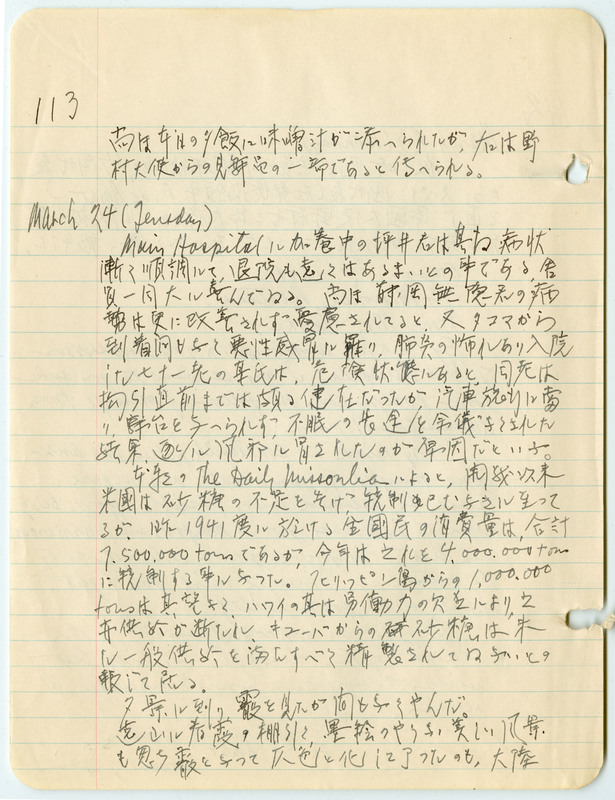 113
尚ほ本日の夕飯に味噌汁が添へられたが、右は野
村大使からの見舞品の一部であると傳へられる。
March 24 (Tuesday)
Main Hospital に加養中の坪井君は其后病状
漸く順調にて、退院も遠くはあるまいとの事である 舎
員一同大に喜んでゐる。尚ほ 岡無 君の病
勢は更に改善されず憂慮されてると、又タコマから
到着間も号く悪性感冒に羅り、肺炎の怖れあり入院
した七十一老の 氏は、危険状態にあると、同老は
拘引直前までは頗る健在だつたが、汽車旅行に當
り寝台を与へられず、不眠の長途を余儀号くされた
結果、遂に流行に冒されたのが原因だといふ。
本 の The Daily Missoulia によると、開戦以来
米國は砂糖の不足を告げ、統制已む号きに至つて
るが、昨1941度に於ける全國民の消費量は、合計
7.500.000 tons であるが、今年は之れを 4.000.000 tons
に統制する事に号つた。フヒリツピン島からの 1,000.000
tons は其望号く、ハワイの其は労働力の欠乏により、之
亦供給が断たれ、キューバからの砂糖は未
だ一般供給を満たすべく精製されてゐ号いとの
報じて居る。
夕景に到り霰を見たが間も号くやんだ。
遠山に春霞の棚引く、墨絵のやう号美しい風景
も忽ち霰と号つて灰色と化して了つたのも、大陸